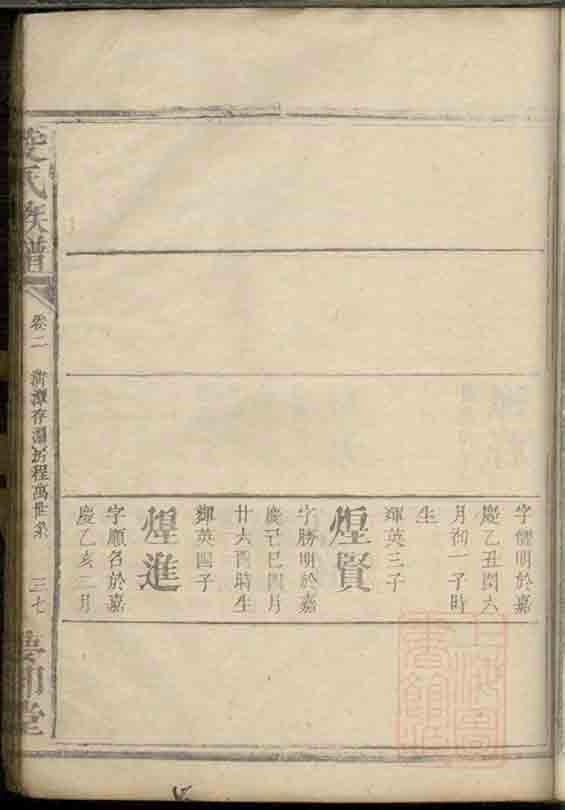 字健明於嘉
慶乙丑閏六
月初一子時
生
煇英三子
煌賢
字勝明於嘉
慶己巳四月
廿六酉時生
輝英四子
煌進
字顯名於嘉
慶乙亥二月
氏族譜
卷二
房程萬世系
三七
堂
上海圖
書館藏